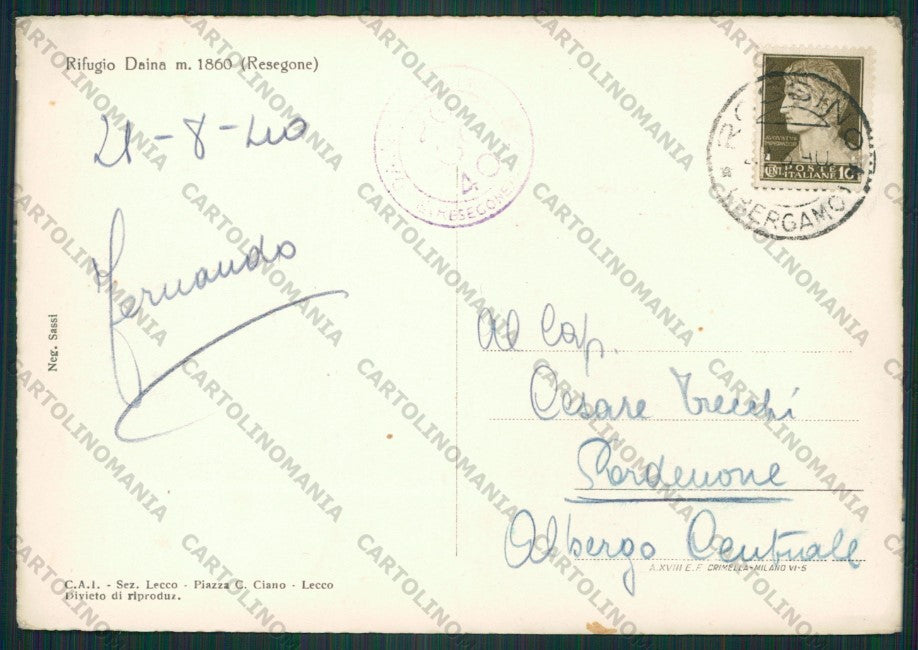 Rifugio Daina m. 1860 (Resegone)
21-8-40
Fernando
Neg. Sassi
C.A.I. - Sez. Lecco - Piazza C. Ciano - Lecco
Divieto di riproduz.
40
RESEGONE
ROSSINO
(BERGAMO)
POSTE
ITALIANE
CENT. 10
Al Cap.
Cesare Trecchi
Pordenone
Albergo Centrale
A.XVIII E.F. CRIMELLA-MILANO VI-5
CARTOLINOMANIA